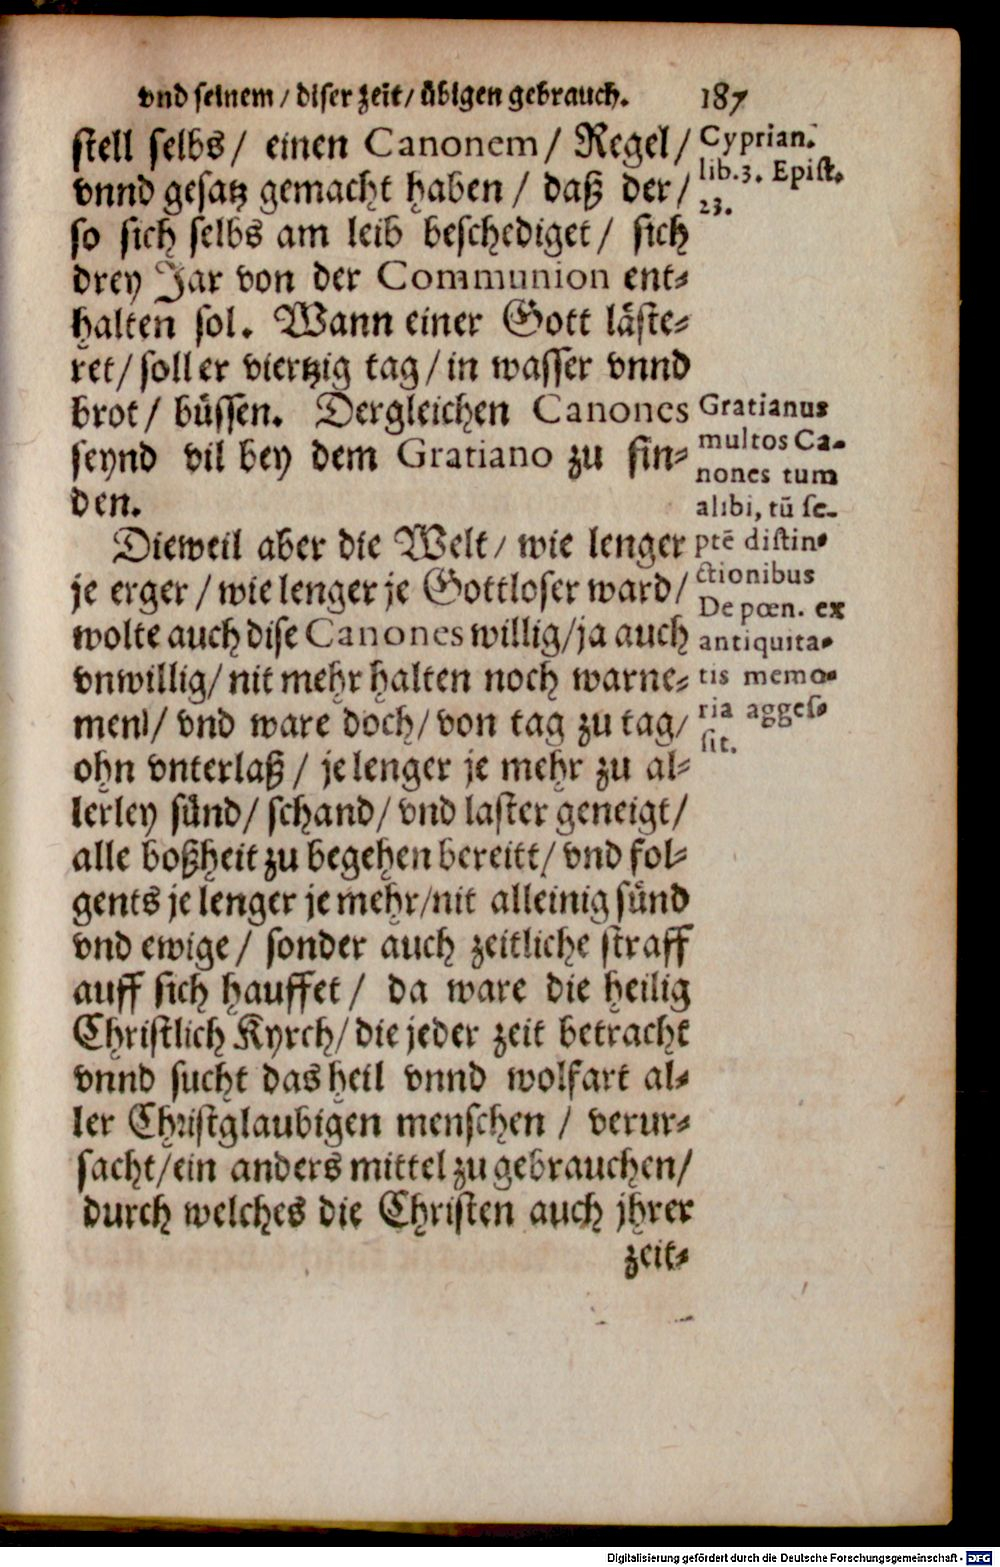 vnd seinem / diser zeit / übigen gebrauch. 187
stell selbs / einen Canonem / Regel /
vnnd gesatz gemacht haben / daß der /
so sich selbs am leib beschediget / sich
drey Jar von der Communion ent⸗
halten sol. Wann einer Gott läste⸗
ret / soll er viertzig tag / in wasser vnnd
brot / büssen. Dergleichen Canones
seynd vil bey dem Gratiano zu fin⸗
den.
Dieweil aber die Welt / wie lenger
je erger / wie lenger je Gottloser ward /
wolte auch dise Canones willig / ja auch
vnwillig / nit mehr halten noch warne⸗
men / vnd ware doch / von tag zu tag /
ohn vnterlaß / je lenger je mehr zu al⸗
lerley sünd / schand / vnd laster geneigt /
alle boßheit zu begehen bereitt / vnd fol⸗
gents je lenger je mehr / nit alleinig sünd
vnd ewige / sonder auch zeitliche straff
auff sich hauffet / da ware die heilig
Christlich Kyrch / die jeder zeit betracht
vnnd sucht das heil vnnd wolfart al⸗
ler Christglaubigen menschen / verur⸗
sacht / ein anders mittel zu gebrauchen /
durch welches die Christen auch jhrer
zeit⸗
Cyprian.
lib.3. Epist.
23.
Gratianus
multos Ca-
nones tum
alibi, tū se-
ptē distin-
ctionibus
De pœn. ex
antiquita-
tis memo-
ria agges-
sit.
Digitalisierung gefördert durch die Deutsche Forschungsgemeinschaft - DFG